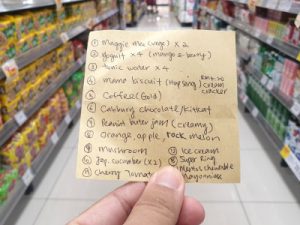 ① Maggie Mee (       ) x 2
② Yogurt x 4 (mango & berry)
③ Tonic water x 4
④ mamee biscuit (Hup Seng)
cream
cracker
⑤ Coffee (Gold)
⑥ Cadbury chocolate/kitkat
⑦ Peanut butter jam (creamy)
⑧ Orange, apple, rock melon
⑨ mushroom
Jap. cucumber (x2)
Cherry Tomato
Ice cream
Super Ring
Mentos chewable
Mayonnaise